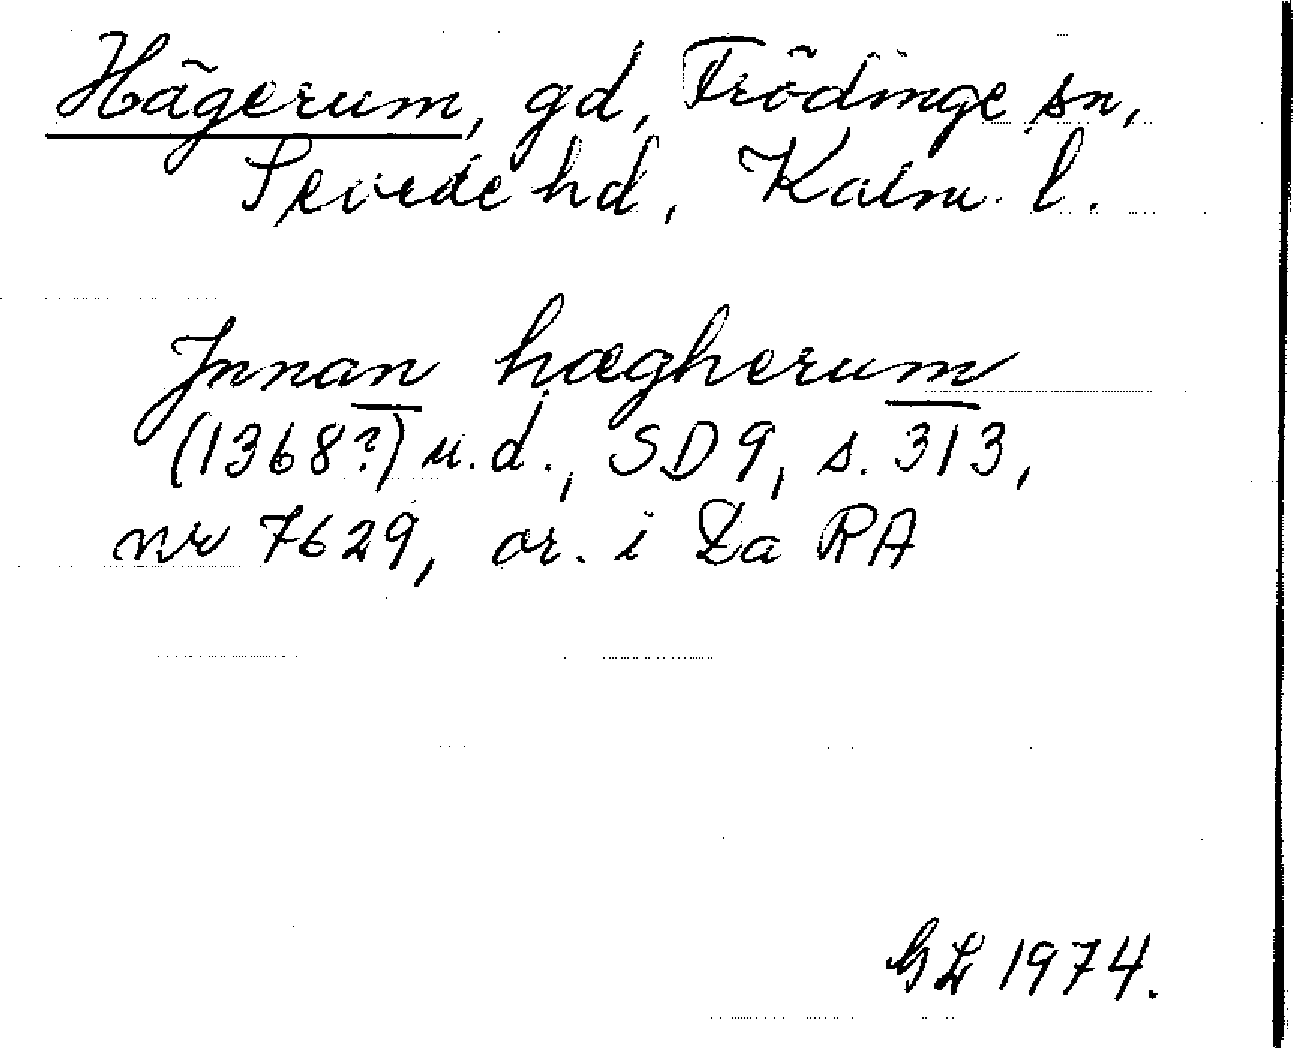 Hägerum, gd, Frödinge sn,
Sevede hd, Kalm. l.
Jnnan hægherum
(1368?) u.d., SD 9, s. 313,
nr 7629, or. i Da RA
GL 1974.